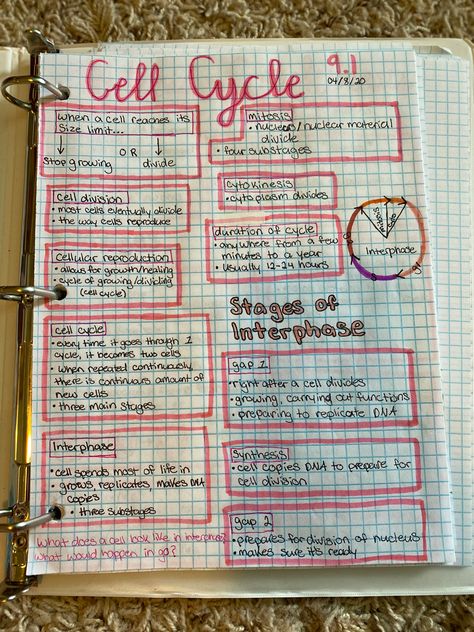 Cell Cycle
9.1
04/8/20
When a cell reaches its
size limit...
Stop growing
OR
divide
Cell division
• most cells eventually divide
• the way cells reproduce
Cellular reproduction
• allows for growth/healing
• cycle of growing/dividing
(cell cycle)
Cell cycle
• every time it goes through 1
cycle, it becomes two cells
• when repeated continuously,
there is continuars amount of
new cells
• three main stages
Interphase
• cell spends most of life in
• grows, replicates, makes DNA
copies
• three substages
What does a cell look like in interphase?
What would happen in g0?
Mitosis
• nucleus/nuclear material
divide
• four substages
Cytokinesis
• cytoplasm divides
duration of cycle
• anywhere from a few
minutes to a year
• usually 12-24 hours
Interphase
Stages of
Interphase
gap 1
• right after a cell divides
• growing, carrying out functions
• preparing to replicate DNA
Synthesis
• cell copies DNA to prepare for
cell division
gap 2
• prepares for division of nucleus
• makes sure it's ready